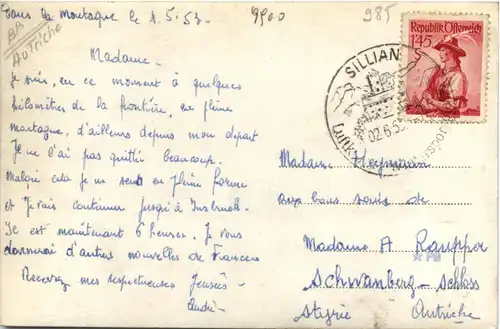 Dans la montagne le 1.5.53.
9900
985
BB
Autriche
Madame.
Je suis, en ce moment à quelques
kilomètres de la frontière, en pleine
montagne, d'ailleurs depuis mon départ
Je ne l'ai pas quitté beaucoup.
Malgré cela je me sens en pleine forme
et Je vais continuer jusqu'à Insbruck.
Il est maintenant 6 heures. Je vous
donnerai d'autres nouvelles de France
Recevez mes respectueuses Pensées
André
Republik Österreich
1S45
SILLIAN
02.6.5
Luftk
Madame Heymann
aux bons soins de
Madame A Raupper
PB
Schwanberg - Schloss
Styrie Autriche